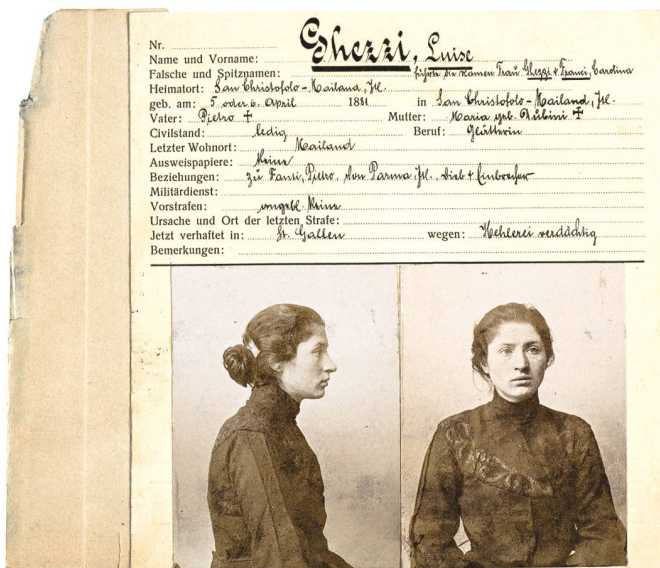 Nr.
Name und Vorname: Ghezzi, Luise
Falsche und Spitznamen: führte die Namen Frau Ghezzi & Franci, Cardina
Heimatort: San Christofolo - Mailand, Itl.
geb. am: 5. oder 6. April 1881 in San Christofolo - Mailand, Itl.
Vater: Pietro ✝ Mutter: Maria geb. Rubini ✝
Civilstand: ledig Beruf: Glätterin
Letzter Wohnort: Mailand
Ausweispapiere: Keine
Beziehungen: zu Fanti, Pietro, von Parma, Itl., Dieb & Einbrecher
Militärdienst:
Vorstrafen: angebl. Keine
Ursache und Ort der letzten Strafe:
Jetzt verhaftet in: St. Gallen wegen: Hehlerei verdächtig
Bemerkungen: